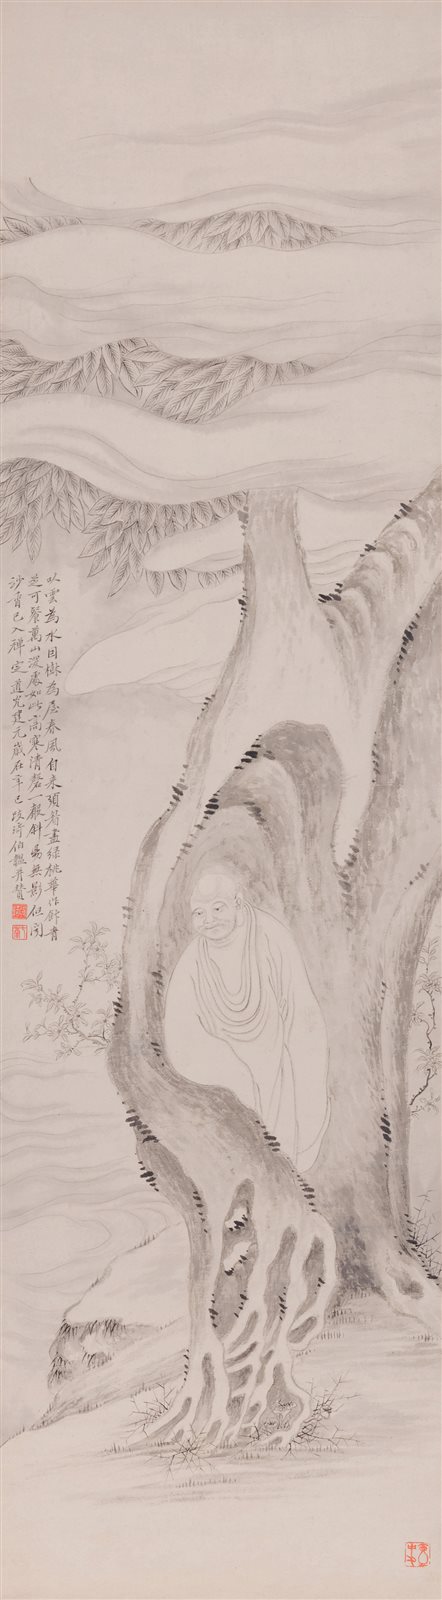 以雲為水因樹為屋春風自來頭著盡綠桃華作飰青
芝可餐萬山深處如此高寒清磬一聲斜陽無影但聞
沙膏已入禪定道光建元歲在辛巳改琦伯韞并贊